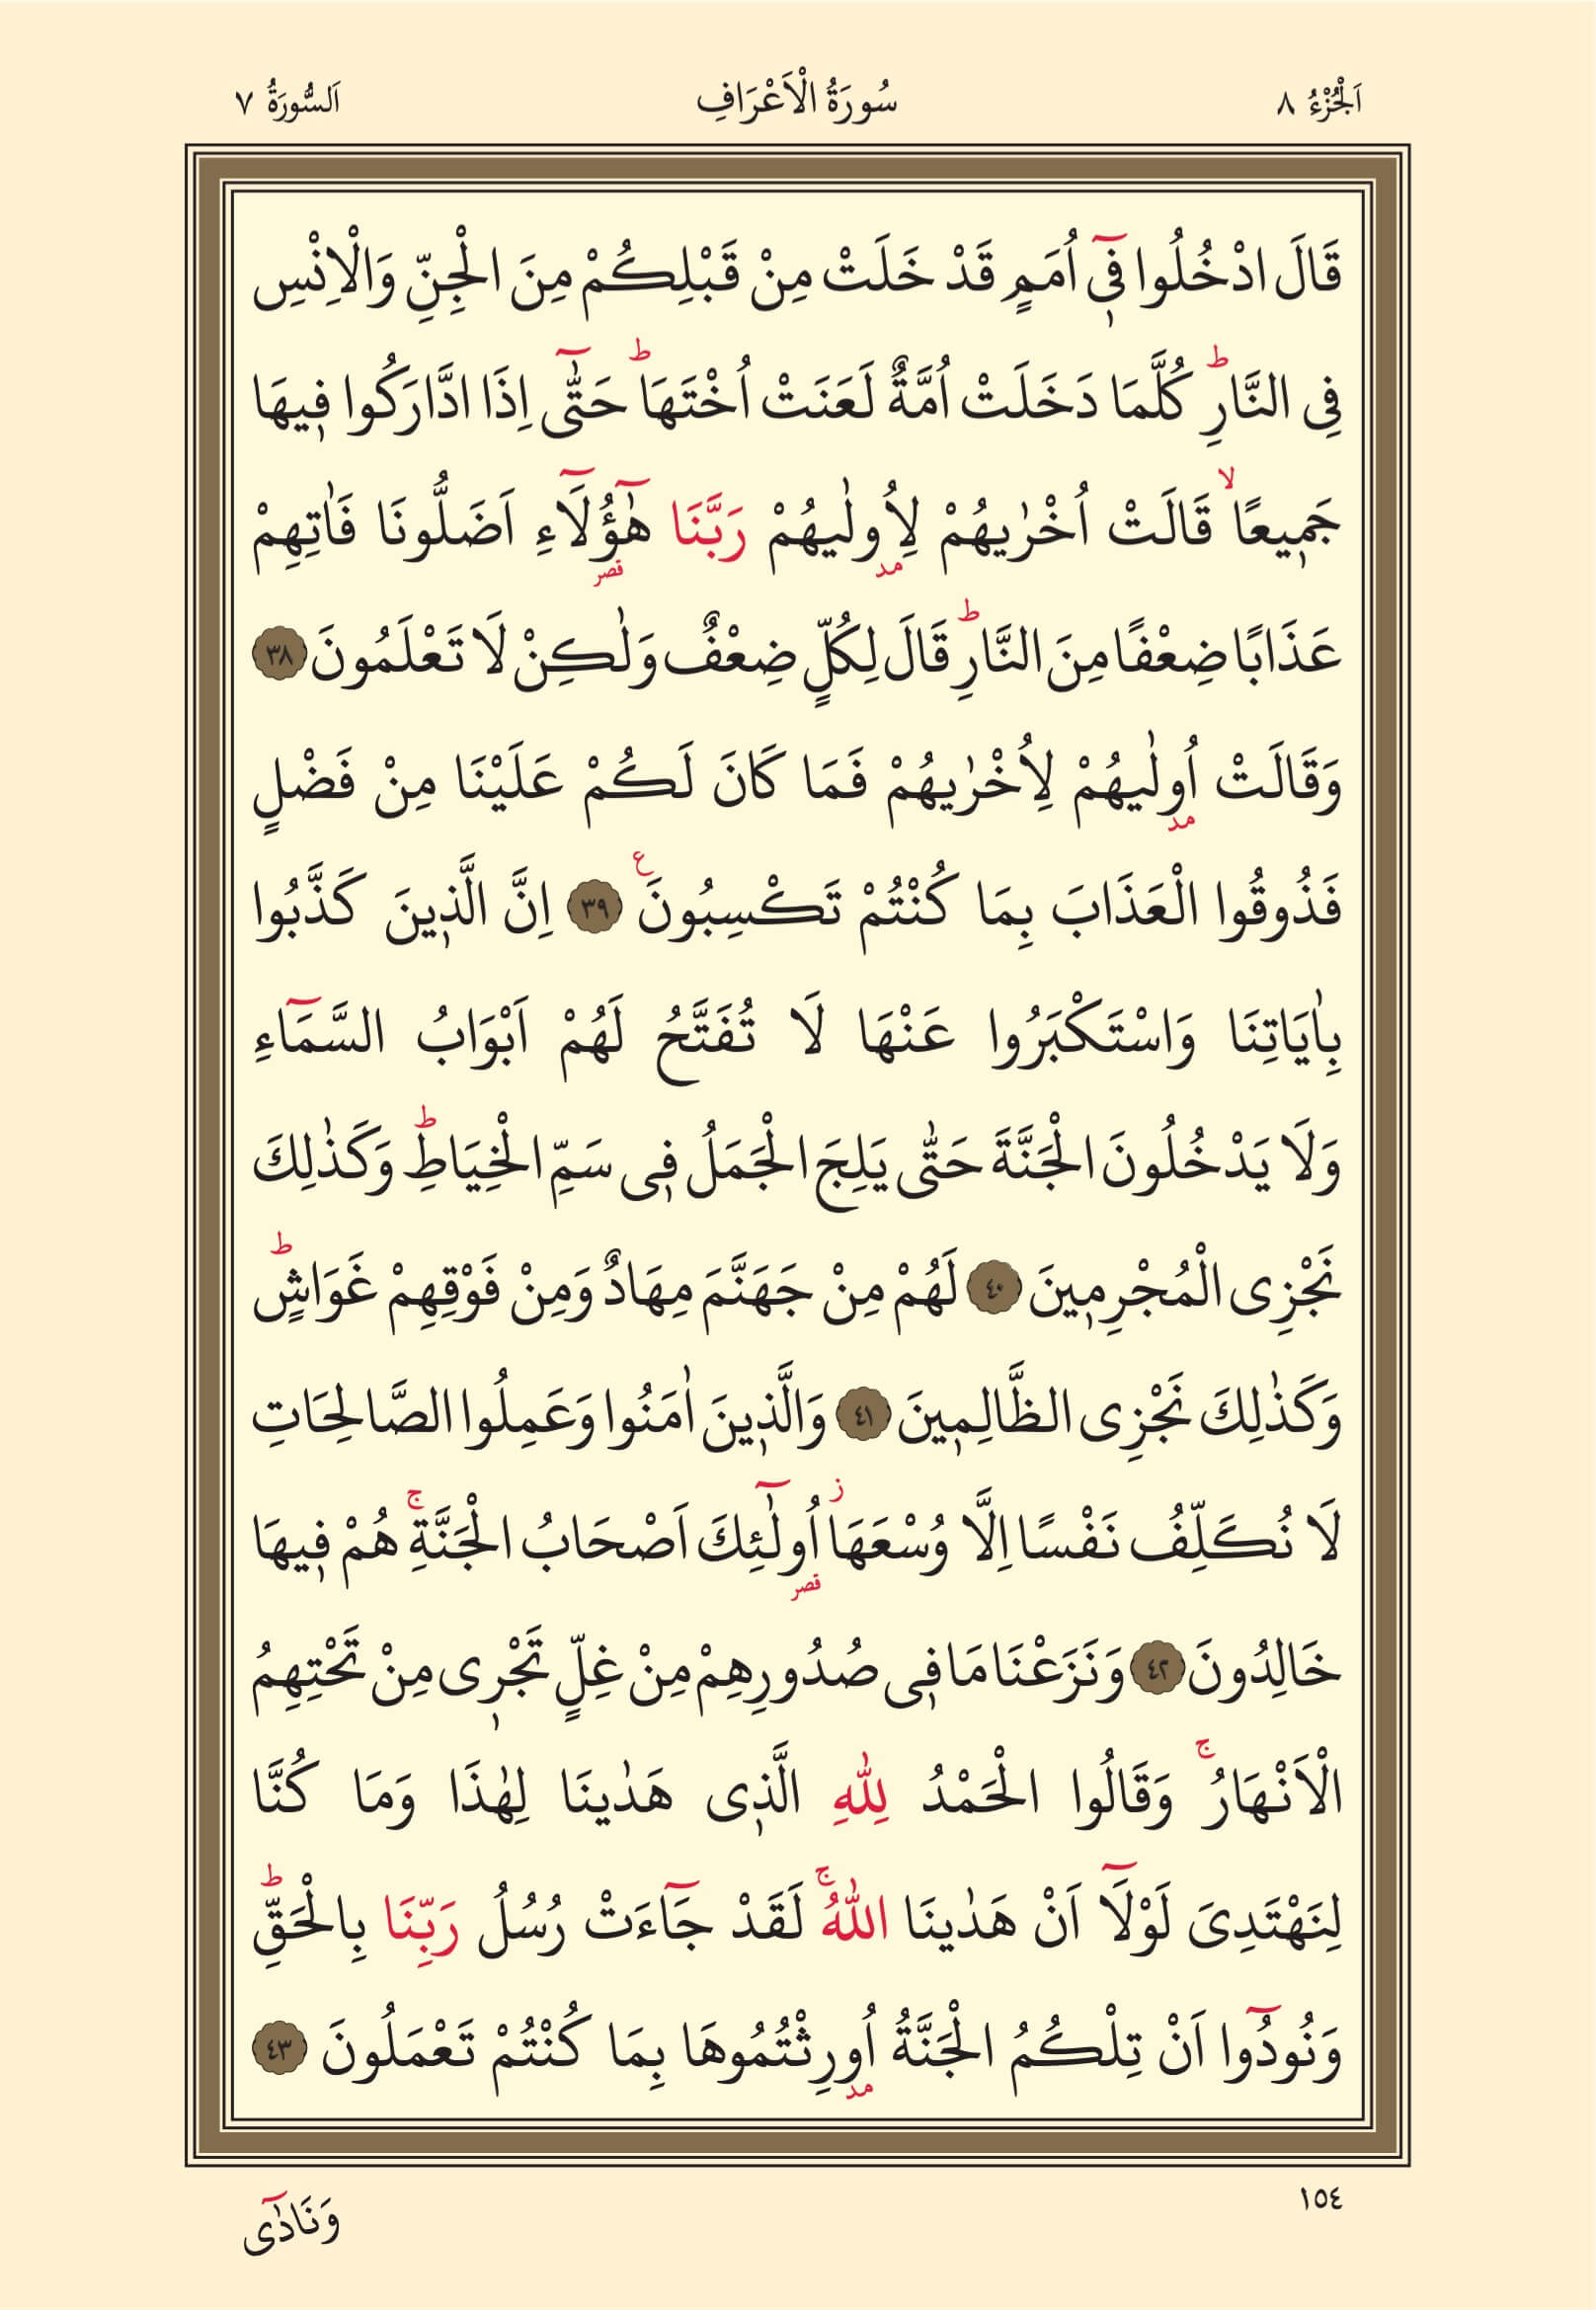 اَلْجُزْءُ ٨
سُورَةُ الْاَعْرَافِ
اَلسُّورَةُ ٧
قَالَ ادْخُلُوا فٖٓي اُمَمٍ قَدْ خَلَتْ مِنْ قَبْلِكُمْ مِنَ الْجِنِّ وَالْاِنْسِ
فِي النَّارِؕ كُلَّمَا دَخَلَتْ اُمَّةٌ لَعَنَتْ اُخْتَهَاؕ حَتّٰٓى اِذَا ادَّارَكُوا فٖيهَا
جَمٖيعًاۙ قَالَتْ اُخْرٰيهُمْ لِاُو۫لٰيهُمْ رَبَّنَا هٰٓؤُ۬لَٓاءِ اَضَلُّونَا فَاٰتِهِمْ
عَذَابًا ضِعْفًا مِنَ النَّارِؕ قَالَ لِكُلٍّ ضِعْفٌ وَلٰكِنْ لَا تَعْلَمُونَ ٣٨
وَقَالَتْ اُو۫لٰيهُمْ لِاُخْرٰيهُمْ فَمَا كَانَ لَكُمْ عَلَيْنَا مِنْ فَضْلٍ
فَذُوقُوا الْعَذَابَ بِمَا كُنْتُمْ تَكْسِبُونَ ع ٣٩ اِنَّ الَّذٖينَ كَذَّبُوا
بِاٰيَاتِنَا وَاسْتَكْبَرُوا عَنْهَا لَا تُفَتَّحُ لَهُمْ اَبْوَابُ السَّمَٓاءِ
وَلَا يَدْخُلُونَ الْجَنَّةَ حَتّٰى يَلِجَ الْجَمَلُ فٖى سَمِّ الْخِيَاطِؕ وَكَذٰلِكَ
نَجْزِى الْمُجْرِمٖينَ ٤٠ لَهُمْ مِنْ جَهَنَّمَ مِهَادٌ وَمِنْ فَوْقِهِمْ غَوَاشٍؕ
وَكَذٰلِكَ نَجْزِى الظَّالِمٖينَ ٤١ وَالَّذٖينَ اٰمَنُوا وَعَمِلُوا الصَّالِحَاتِ
لَا نُكَلِّفُ نَفْسًا اِلَّا وُسْعَهَاؗ اُو۬لٰٓئِكَ اَصْحَابُ الْجَنَّةِۚ هُمْ فٖيهَا
خَالِدُونَ ٤٢ وَنَزَعْنَا مَا فٖى صُدُورِهِمْ مِنْ غِلٍّ تَجْرٖى مِنْ تَحْتِهِمُ
الْاَنْهَارُۚ وَقَالُوا الْحَمْدُ لِلّٰهِ الَّذٖى هَدٰينَا لِهٰذَا وَمَا كُنَّا
لِنَهْتَدِىَ لَوْلَٓا اَنْ هَدٰينَا اللّٰهُۚ لَقَدْ جَٓاءَتْ رُسُلُ رَبِّنَا بِالْحَقِّؕ
وَنُودُٓوا اَنْ تِلْكُمُ الْجَنَّةُ اُو۫رِثْتُمُوهَا بِمَا كُنْتُمْ تَعْمَلُونَ ٤٣
١٥٤
وَنَادٰٓى